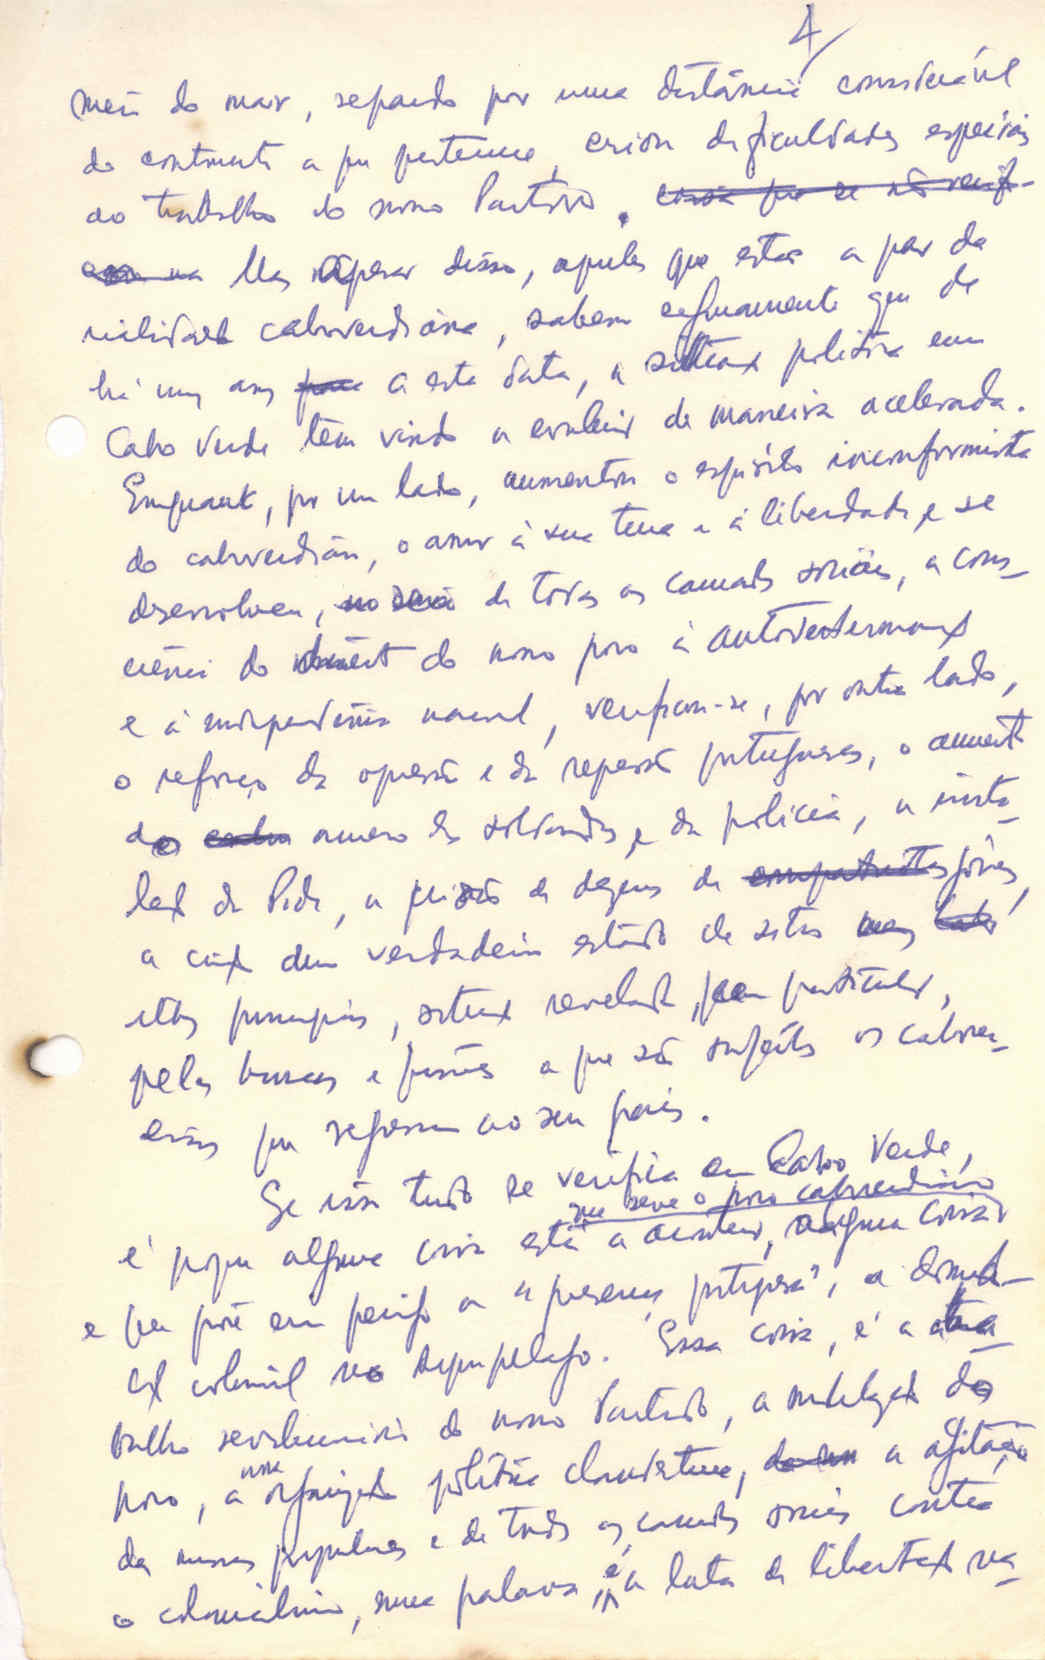 4/
meio do mar, separado por uma distância considerável
do continente a que pertence, criou dificuldades especiais
ao trabalho do nosso Partido. coisa que se não verifi-
na Mas apesar disso, aqueles que estão a par da
realidade caboverdiana, sabem certamente que de
há uns anos para a esta data, a situação política em
Cabo Verde tem vindo a evoluir de maneira acelerada.
Enquanto, por um lado, aumentou o espírito inconformista
do caboverdiano, o amor à sua terra e à liberdade, e se
desenvolveu, no seio de todas as camadas sociais, a cons-
ciência do direito do nosso povo à autodeterminação
e à independência nacional, verificou-se, por outro lado,
o reforço da opressão e da repressão portuguesas, o aumento
do numero de soldados, e da polícia, a insta-
lação da Pide, a prisão de dezenas de compatriotas jóvens,
a criação dum verdadeiro estado de sítio nas
ilhas principais, situação revelada, em particular,
pelas buscas e prisões a que são sujeitos os cabover-
eanos que regressam ao seu país.
Se isso tudo se verifica em Cabo Verde,
que serve o povo caboverdiano
é porque alguma coisa está a acontecer, alguma coisa
e que põe em perigo a "presença portuguesa", a domina-
ção colonial no arquipélago. Essa coisa, é a
balho revolucionário do nosso Partido, a mobilização do
nossa
povo, a organização política clandestina, a agitação
das massas populares e de todas as camadas sociais contra
o colonialismo, numa palavra, é a luta de libertação na-